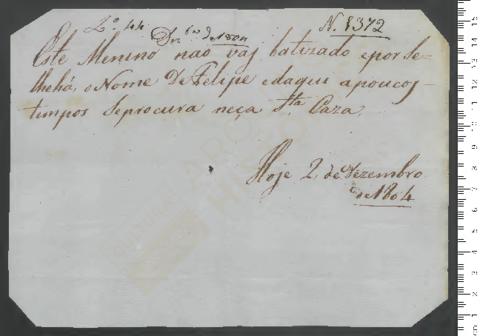 L.º 44 Dez.bro de 1804 N. 1372
Este Menino não vaj batizado eporse-
lhehá, o Nome De Felipe edaqui apoucos
tempos Seprocura neça S.ta Caza.
Hoje 2, de Dezembro
de 1804